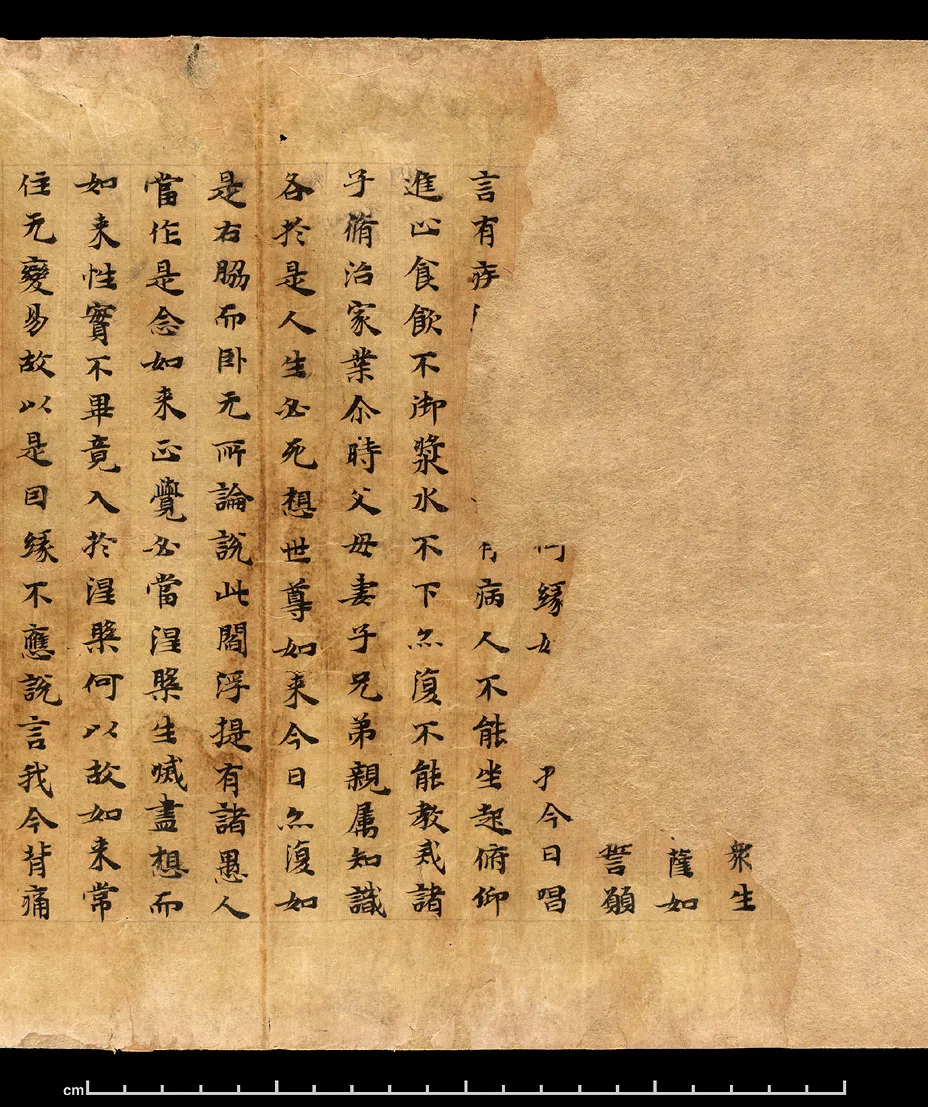 衆生
薩如
誓願
何緣 今日唱
言有病 有病人不能坐起俯仰
進止食飲不御漿水不下亦復不能教戒諸
子脩治家業尒時父母妻子兄弟親属知識
各於是人生必死想世尊如来今日亦復如
是右脇而卧无所論說此閻浮提有諸愚人
當作是念如来正覺必當涅槃生滅盡想而
如来性實不畢竟入於涅槃何以故如来常
住无變易故以是因緣不應說言我今背痛